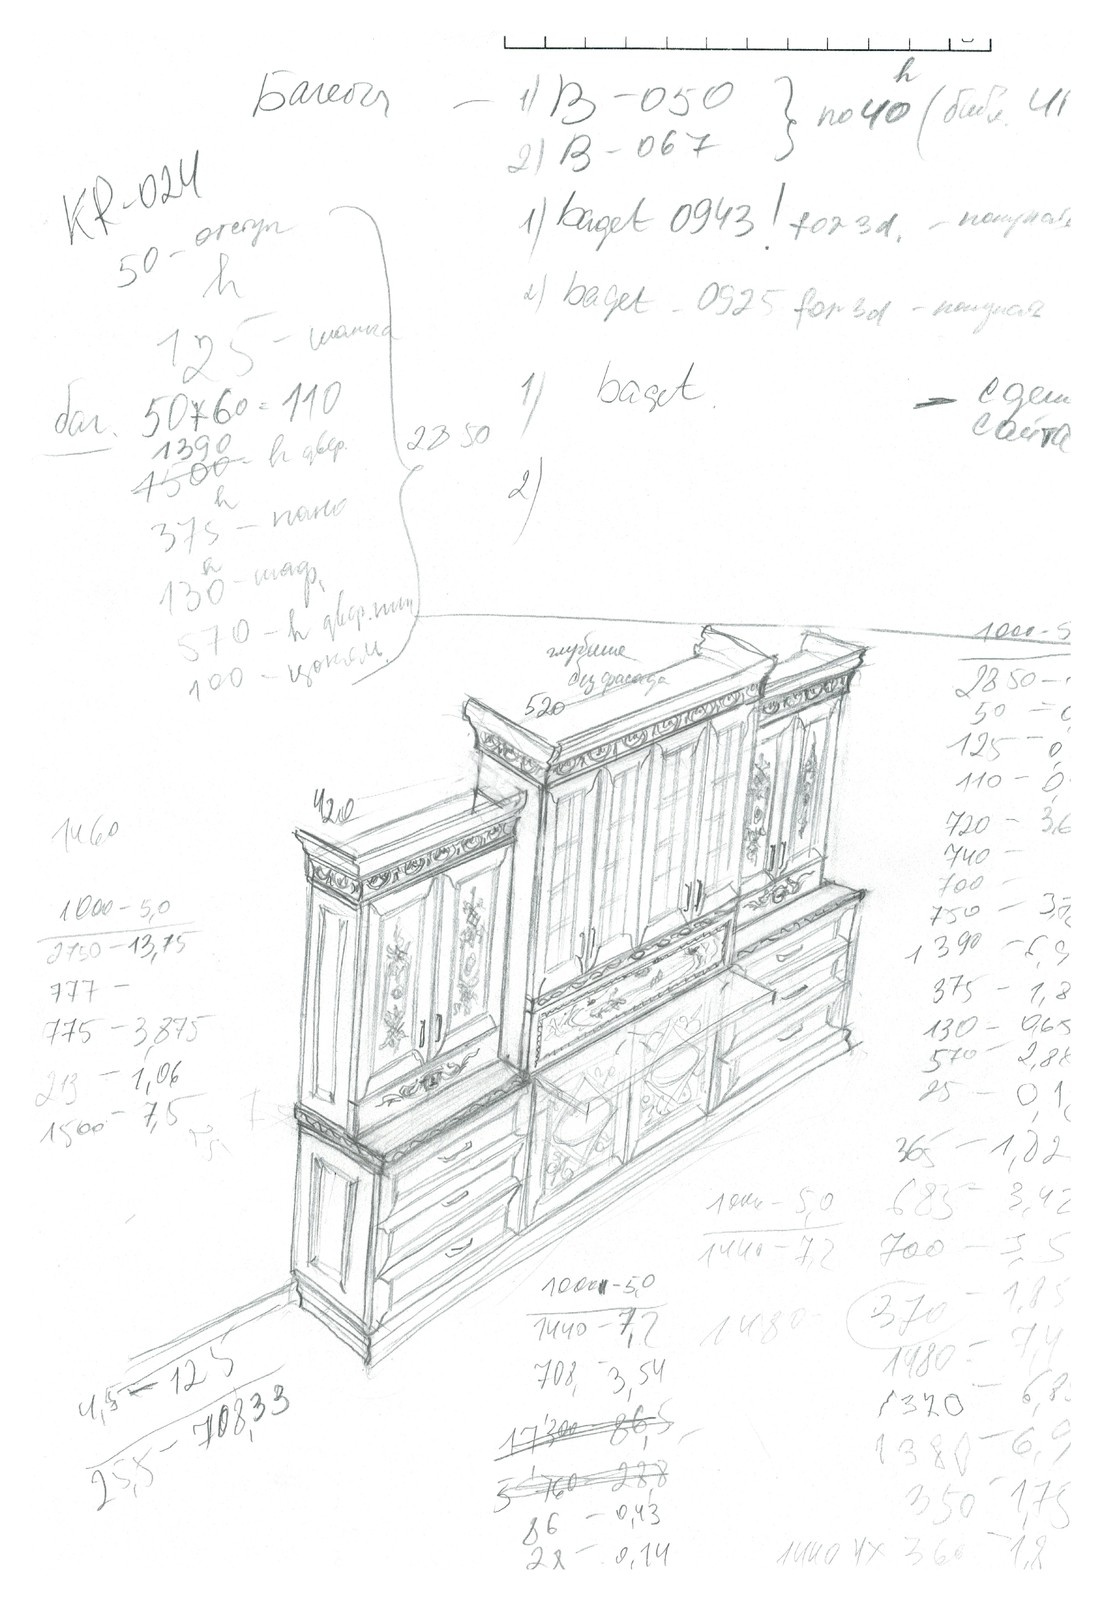 Багеты — 1) B-050 } по 40 h (
2) B-067
KR-024
1) baget 0943! for 3d. -
50 - отступ
h
2) baget - 0925 for 3d -
125 - шапка
баг. 50+60=110
1) baget. —
сайта
1390
1500 - h двер.
2850
2)
h
375 - пано
h
130 - шаф.
570 - h двер. ниж
100 - цоколь
1000-5
глубина
без фасада
520
2850 -
50 - 0
125 - 0
110 - 0
420
1460
720 - 3,6
740 -
700 -
750 - 3,7
1000 - 5,0
2750 - 13,75
1390 - 6,9
777 -
375 - 1,8
775 - 3,875
130 - 0,65
570 - 2,8
213 - 1,06
25 - 0,1
1500 - 7,5
365 - 1,82
1000 - 5,0
683 - 3,42
1440 - 7,2
700 - 3,5
1000 - 5,0
370 - 1,85
1440 - 7,2
1480 -
1480 - 7,4
4,5 - 125
708 - 3,54
1370 - 6,8
25,5 - 708,33
17300 86,5
1380 - 6,9
5760 - 28,8
350 - 1,75
86 - 0,43
28 - 0,14
1440 4x 360 - 1,8